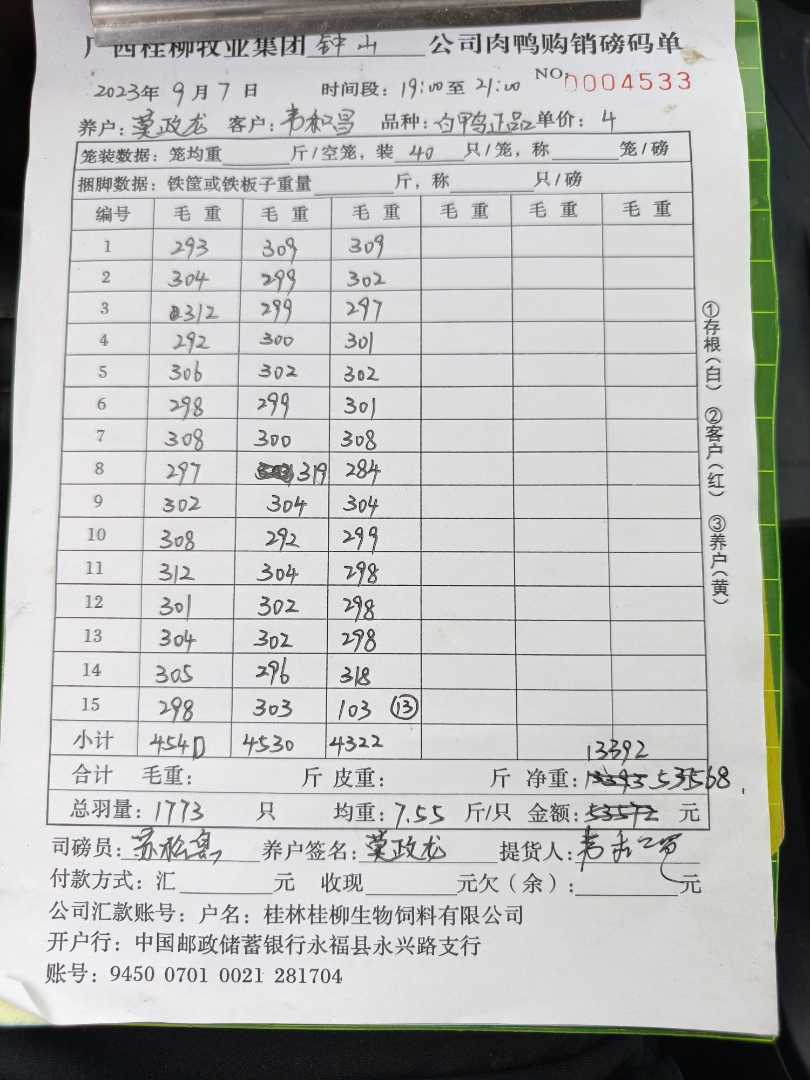 广西桂柳牧业集团 钟山 公司肉鸭购销磅码单
2023年 9月 7日 时间段: 19:00至 21:00 NO. 0004533
养户: 莫政龙 客户: 韦 昌 品种: 白鸭正品 单价: 4
笼装数据: 笼均重 斤/空笼, 装 40 只/笼, 称 笼/磅
捆脚数据: 铁筐或铁板子重量 斤, 称 只/磅
编号 毛重 毛重 毛重 毛重 毛重 毛重
1 293 309 309
2 304 299 302
3 312 299 297
4 292 300 301
5 306 302 302
6 298 299 301
7 308 300 308
8 297 319 284
9 302 304 304
10 308 292 299
11 312 304 298
12 301 302 298
13 304 302 298
14 305 296 318
15 298 303 103 ⑬
小计 4540 4530 4322
13392
合计 毛重: 斤 皮重: 斤 净重: 13393 53568
总羽量: 1773 只 均重: 7.55 斤/只 金额: 53572 元
司磅员: 养户签名: 莫政龙 提货人: 韦
付款方式: 汇 元 收现 元欠(余): 元
公司汇款账号: 户名: 桂林桂柳生物饲料有限公司
开户行: 中国邮政储蓄银行永福县永兴路支行
账号: 9450 0701 0021 281704
①存根(白) ②客户(红) ③养户(黄)